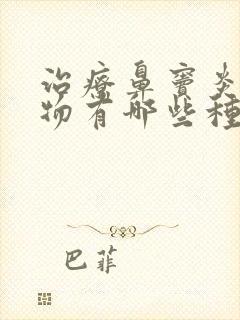 治療鼻竇炎
物有哪些種
巴菲